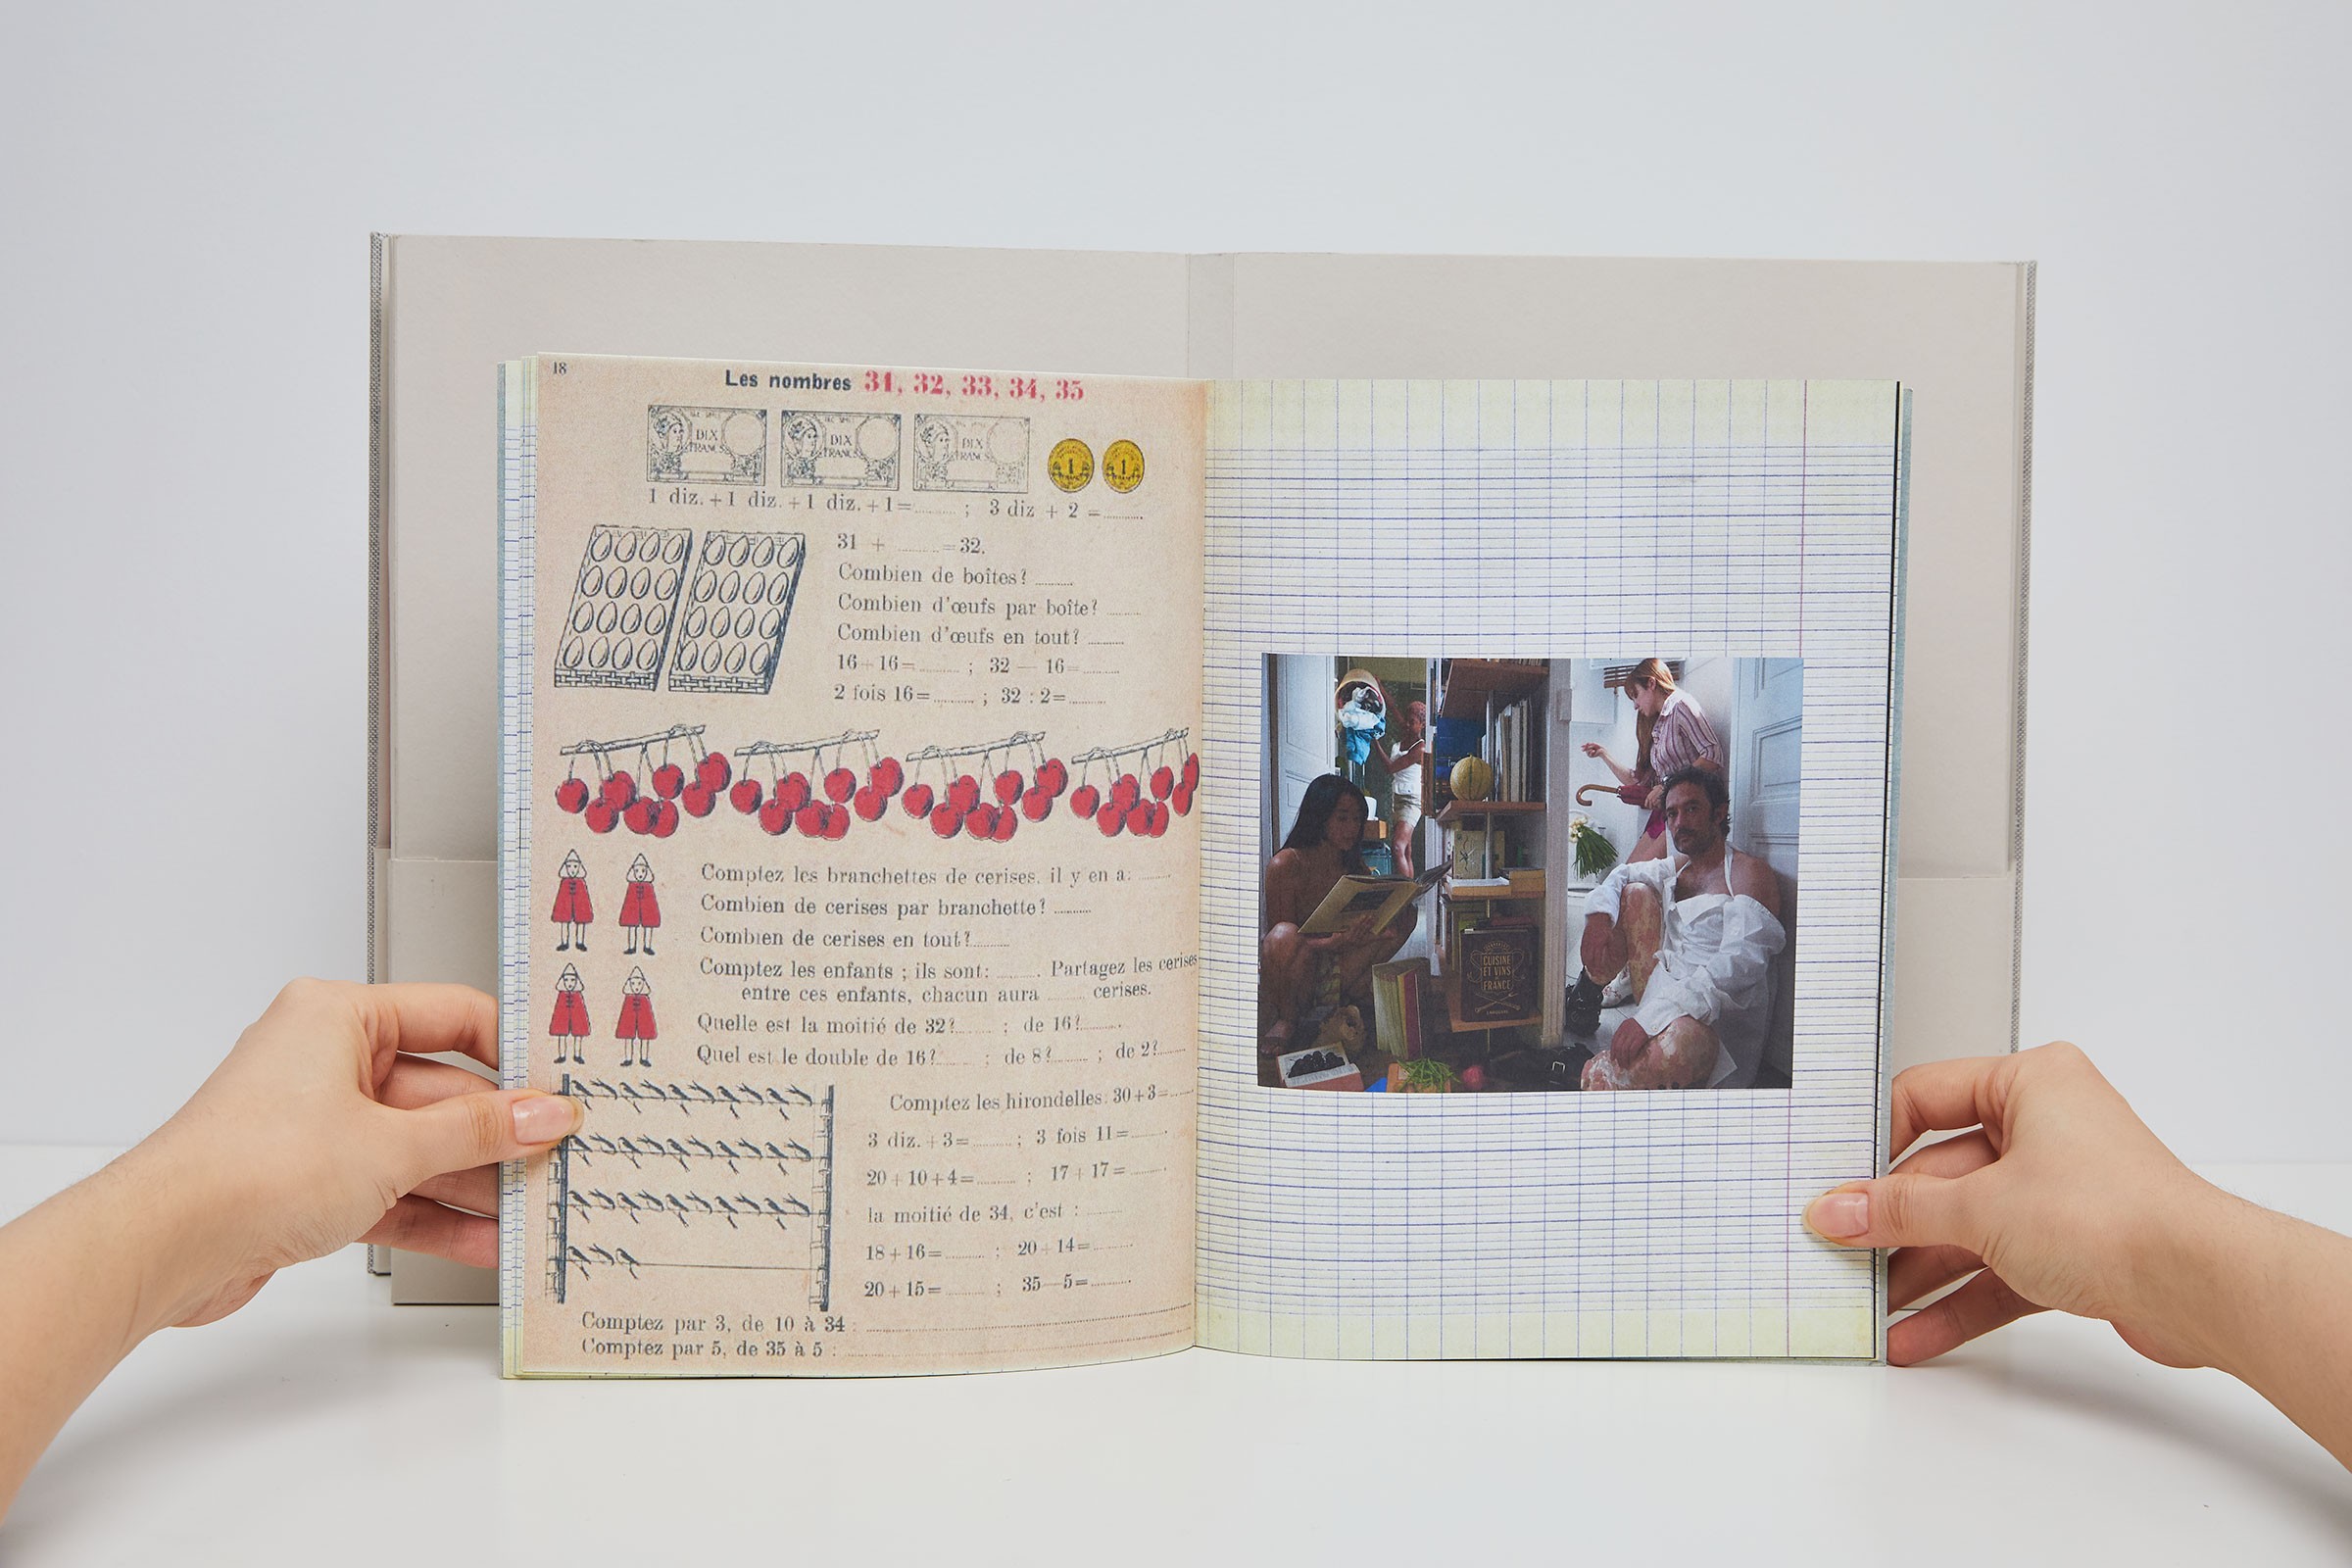 18
Les nombres 31, 32, 33, 34, 35
DIX FRANCS DIX FRANCS DIX FRANCS 1 1
1 diz. + 1 diz. + 1 diz. + 1 = ........ ; 3 diz + 2 = ........
31 + ........ = 32.
Combien de boîtes? ........
Combien d'œufs par boîte? ........
Combien d'œufs en tout? ........
16 + 16 = ........ ; 32 — 16 = ........
2 fois 16 = ........ ; 32 : 2 = ........
Comptez les branchettes de cerises, il y en a: ........
Combien de cerises par branchette? ........
Combien de cerises en tout? ........
Comptez les enfants ; ils sont: ........ . Partagez les cerises
entre ces enfants, chacun aura ........ cerises.
Quelle est la moitié de 32? ........ ; de 16? ........
Quel est le double de 16? ........ ; de 8? ........ ; de 2? ........
Comptez les hirondelles: 30 + 3 = ........
3 diz. + 3 = ........ ; 3 fois 11 = ........
20 + 10 + 4 = ........ ; 17 + 17 = ........
la moitié de 34, c'est : ........
18 + 16 = ........ ; 20 + 14 = ........
20 + 15 = ........ ; 35 — 5 = ........
Comptez par 3, de 10 à 34 : ........
Comptez par 5, de 35 à 5 : ........
CUISINE
ET VINS
DE
FRANCE